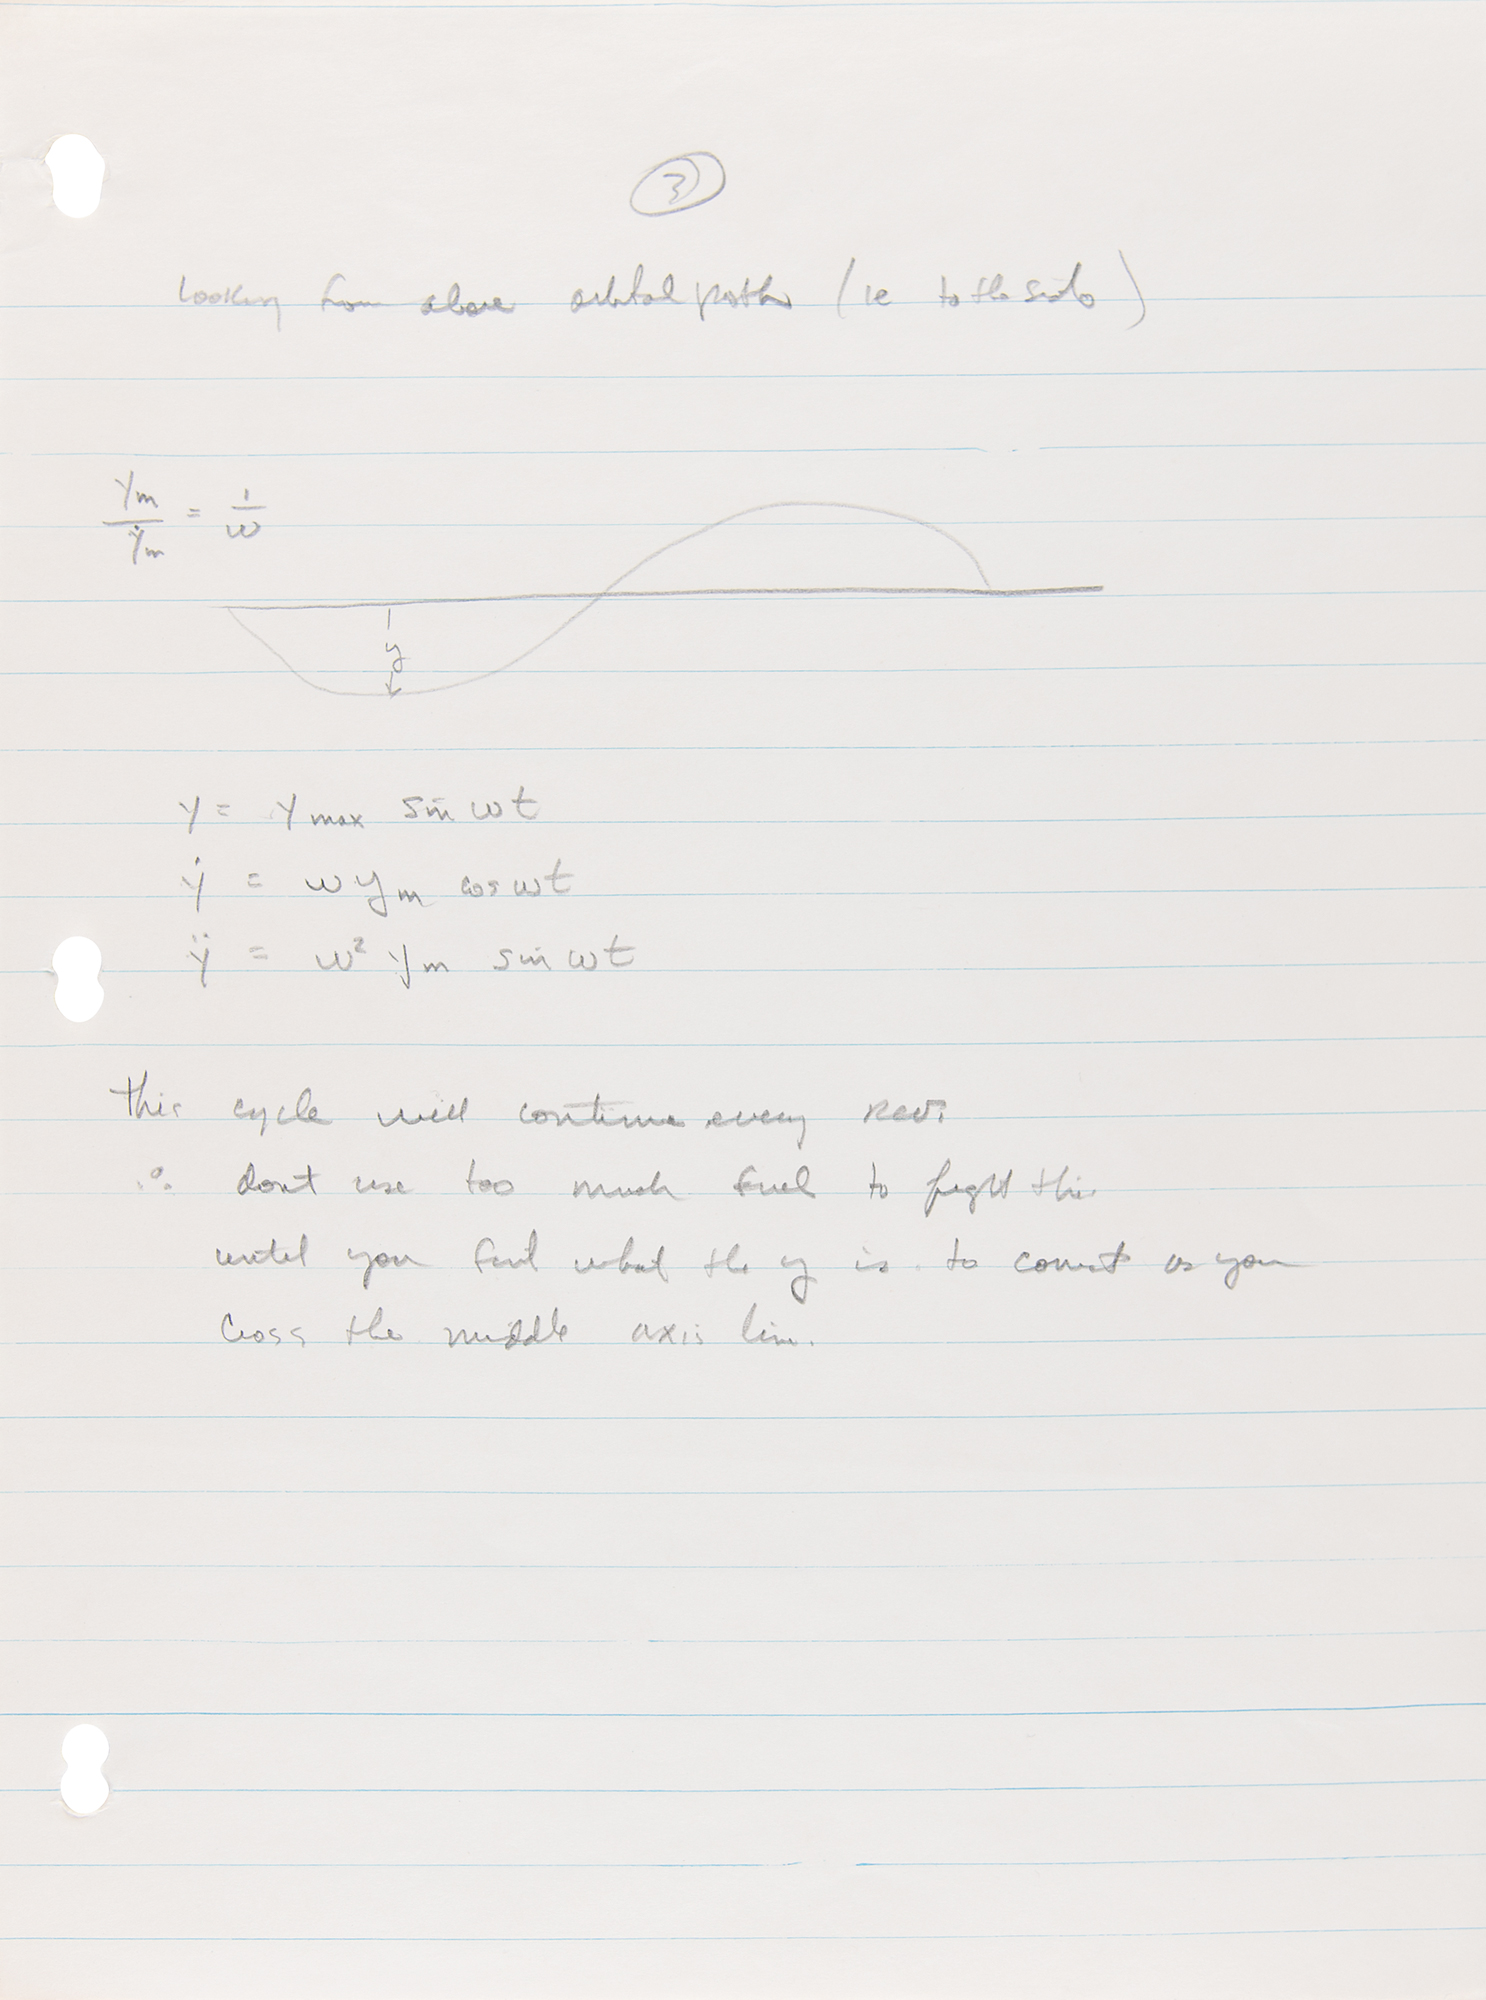 3
Looking from above orbital paths (ie to the side)
Ym
Ẏm = 1
ω
y
y = y max sin ωt
ẏ = ω ym cos ωt
ÿ = ω² ym sin ωt
This cycle will continue every Rev.
∴ dont use too much fuel to fight this
until you find what the y is to correct as you
Cross the middle axis line.